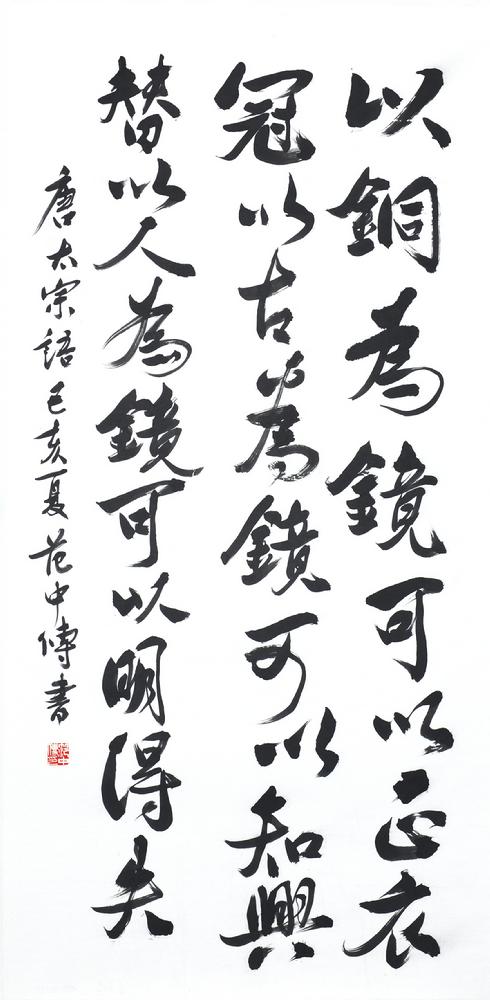 以銅為鏡可以正衣
冠以古為鏡可以知興
替以人為鏡可以明得失
唐太宗語己亥夏范中傳書